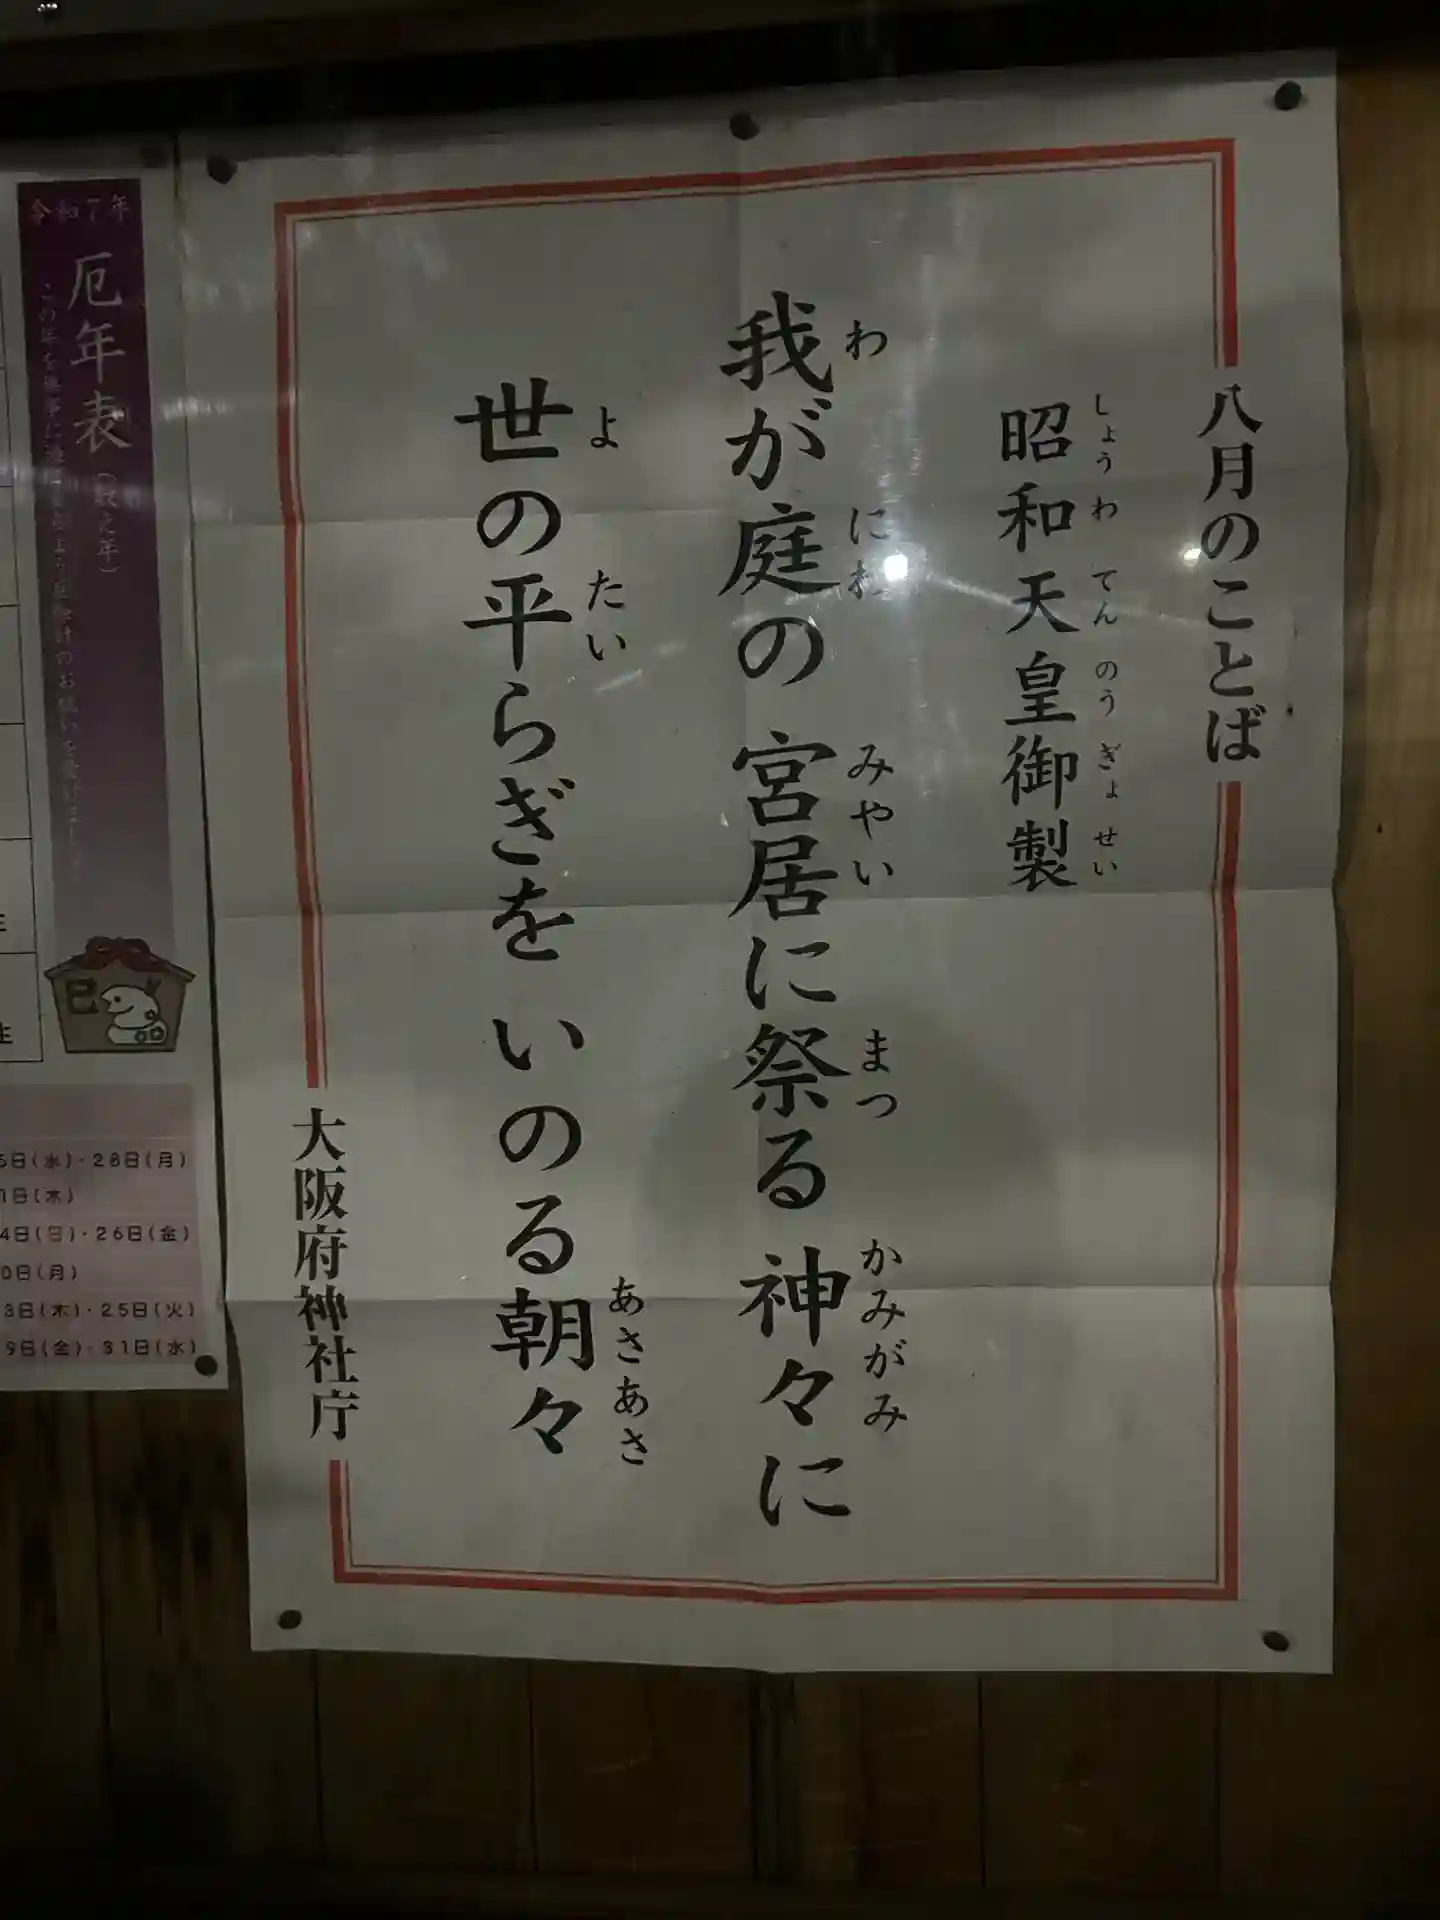 八月のことば
昭和天皇御製
しょうわてんのうぎょせい
我が庭の宮居に祭る神々に
わ にわ みやい まつ かみがみ
世の平らぎをいのる朝々
よ たい あさあさ
大阪府神社庁
令和7年
厄年表(数え年)
巳
5日(水)・28日(月)
1日(木)
4日(日)・26日(金)
0日(月)
3日(木)・25日(火)
9日(金)・31日(水)